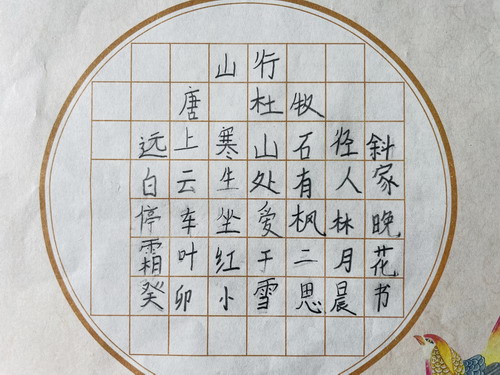 山行
唐 杜牧
远上寒山石径斜
白云生处有人家
停车坐爱枫林晚
霜叶红于二月花
癸卯小雪思晨书